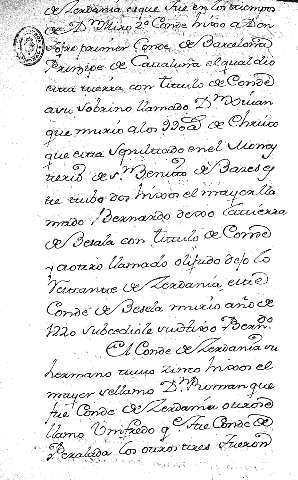 de Zerdania es que fue en los tiempos
de D.ⁿ Miro 2.º Conde hixo a Don
Jofre primer Conde de Barcelona
Prinsipe de Cataluña el qual dio
esta tierra con titulo de Conde
a su sobrino llamado D.ⁿ
que murio a los 990 de Christo
que esta sepultado en el Monas
terio de S.ⁿ Benito de Bages es
te tubo dos hixos el mayor lla
mado Bernardo de xo la tierra
de Besalu con titulo de Conde
y a otro llamado Olifredo dejo lo
restante de Zerdania, este
Conde de Besalu murio año de
1220 subcediole su hixo Bern.do
El Conde de Zerdania su
hermano tuvo zinco hixos el
mayor se llamo D.ⁿ Roman que
fue Conde de Zerdania otro se
llamo Umfredo q.e fue Conde de
Peralada los otros tres fueron